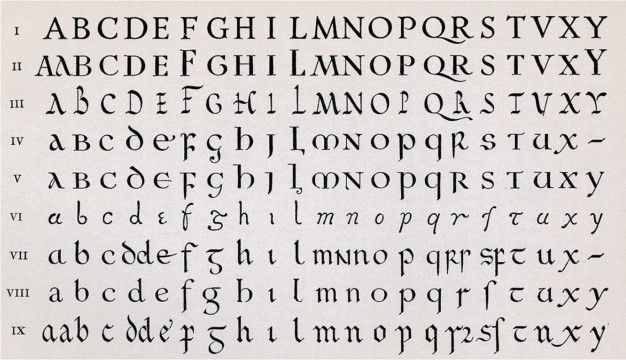 I A B C D E F G H I L M N O P Q R S T V X Y
II A A B C D E F G H I L M N O P Q R S T V X Y
III A B C D E F G H I L M N O P Q R S T V X Y
IV a B C d e F g h I L m N O p q R S T u x ~
V A B C D E F G h I L m N O P q R S T u x y
VI a b c d e f g h i l m n o p q r ſ t u x y
VII a b c d d e f g h i l m N n o p q r r s p t u x ~
VIII a b c d e f g b i l m n o p q r ſ t u x y
IX a a b c d d e f g h i l m n o p q r 2 s ſ t u x y